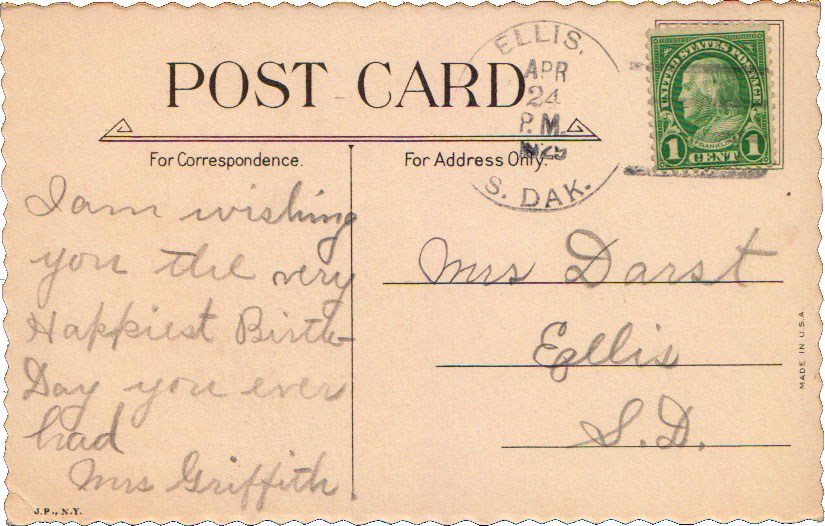 POST CARD
For Correspondence.
For Address Only.
ELLIS.
APR
24
P.M.
1925
S. DAK.
UNITED STATES POSTAGE
FRANKLIN
1 CENT 1
I am wishing
you the very
Happiest Birth-
Day you ever
had
Mrs Griffith
Mrs Darst
Ellis
S.D.
MADE IN U.S.A.
J.P., N.Y.